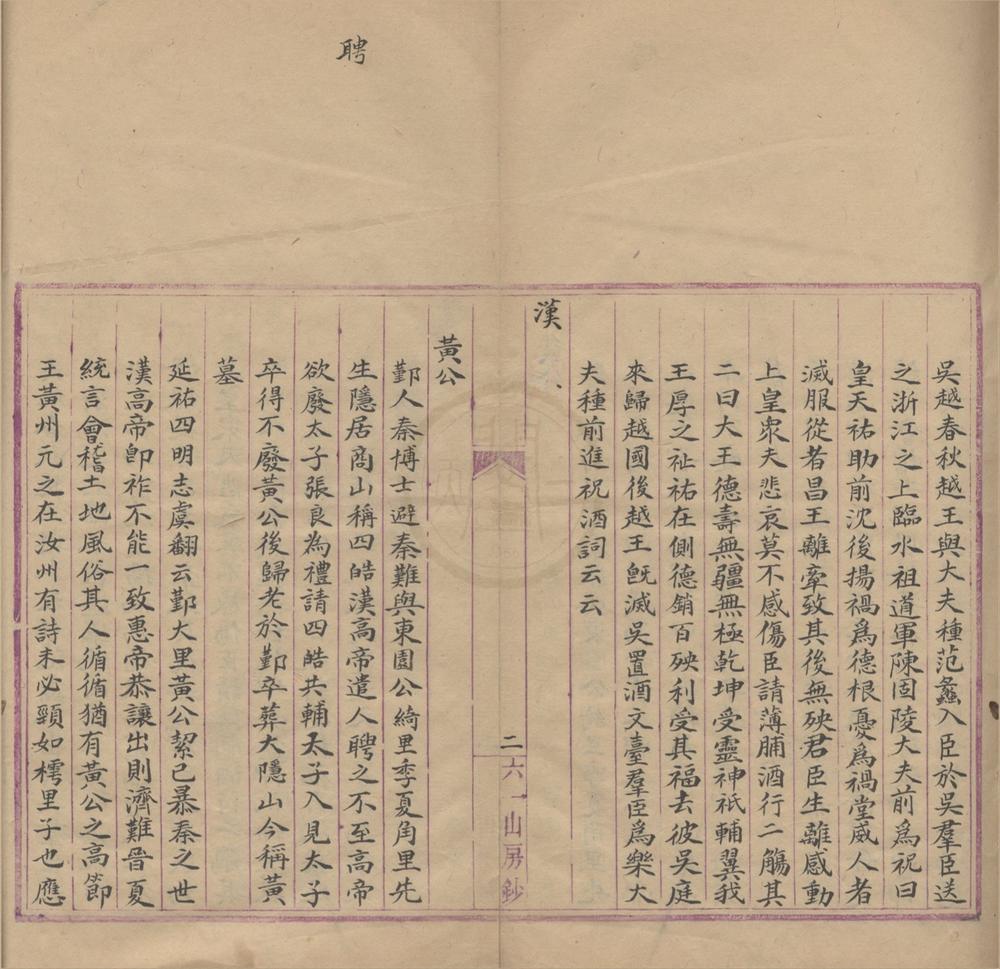 吳越春秋越王與大夫種范蠡入臣於吳羣臣送
之浙江之上臨水祖道軍陳固陵大夫前為祝曰
皇天祐助前沈後揚禍為德根憂為禍堂威人者
滅服從者昌王離牽致其後無殃君臣生離感動
上皇衆夫悲哀莫不感傷臣請薄脯酒行二觴其
二曰大王德壽無疆無極乾坤受靈神祇輔翼我
王厚之祉祐在側德銷百殃利受其福去彼吳庭
來歸越國後越王旣滅吳置酒文臺羣臣為樂大
夫種前進祝酒詞云云
漢
二
六一山房鈔
黃公
鄞人秦博士避秦難與東園公綺里季夏角里先
生隱居商山稱四皓漢高帝遣人聘之不至高帝
欲廢太子張良為禮請四皓共輔太子入見太子
卒得不廢黃公後歸老於鄞卒葬大隱山今稱黃
墓
延祐四明志虞翻云鄞大里黃公絜已暴秦之世
漢高帝卽祚不能一致惠帝恭讓出則濟難晉夏
統言會稽土地風俗其人循循猶有黃公之高節
王黃州元之在汝州有詩未必頸如樗里子也應
聘